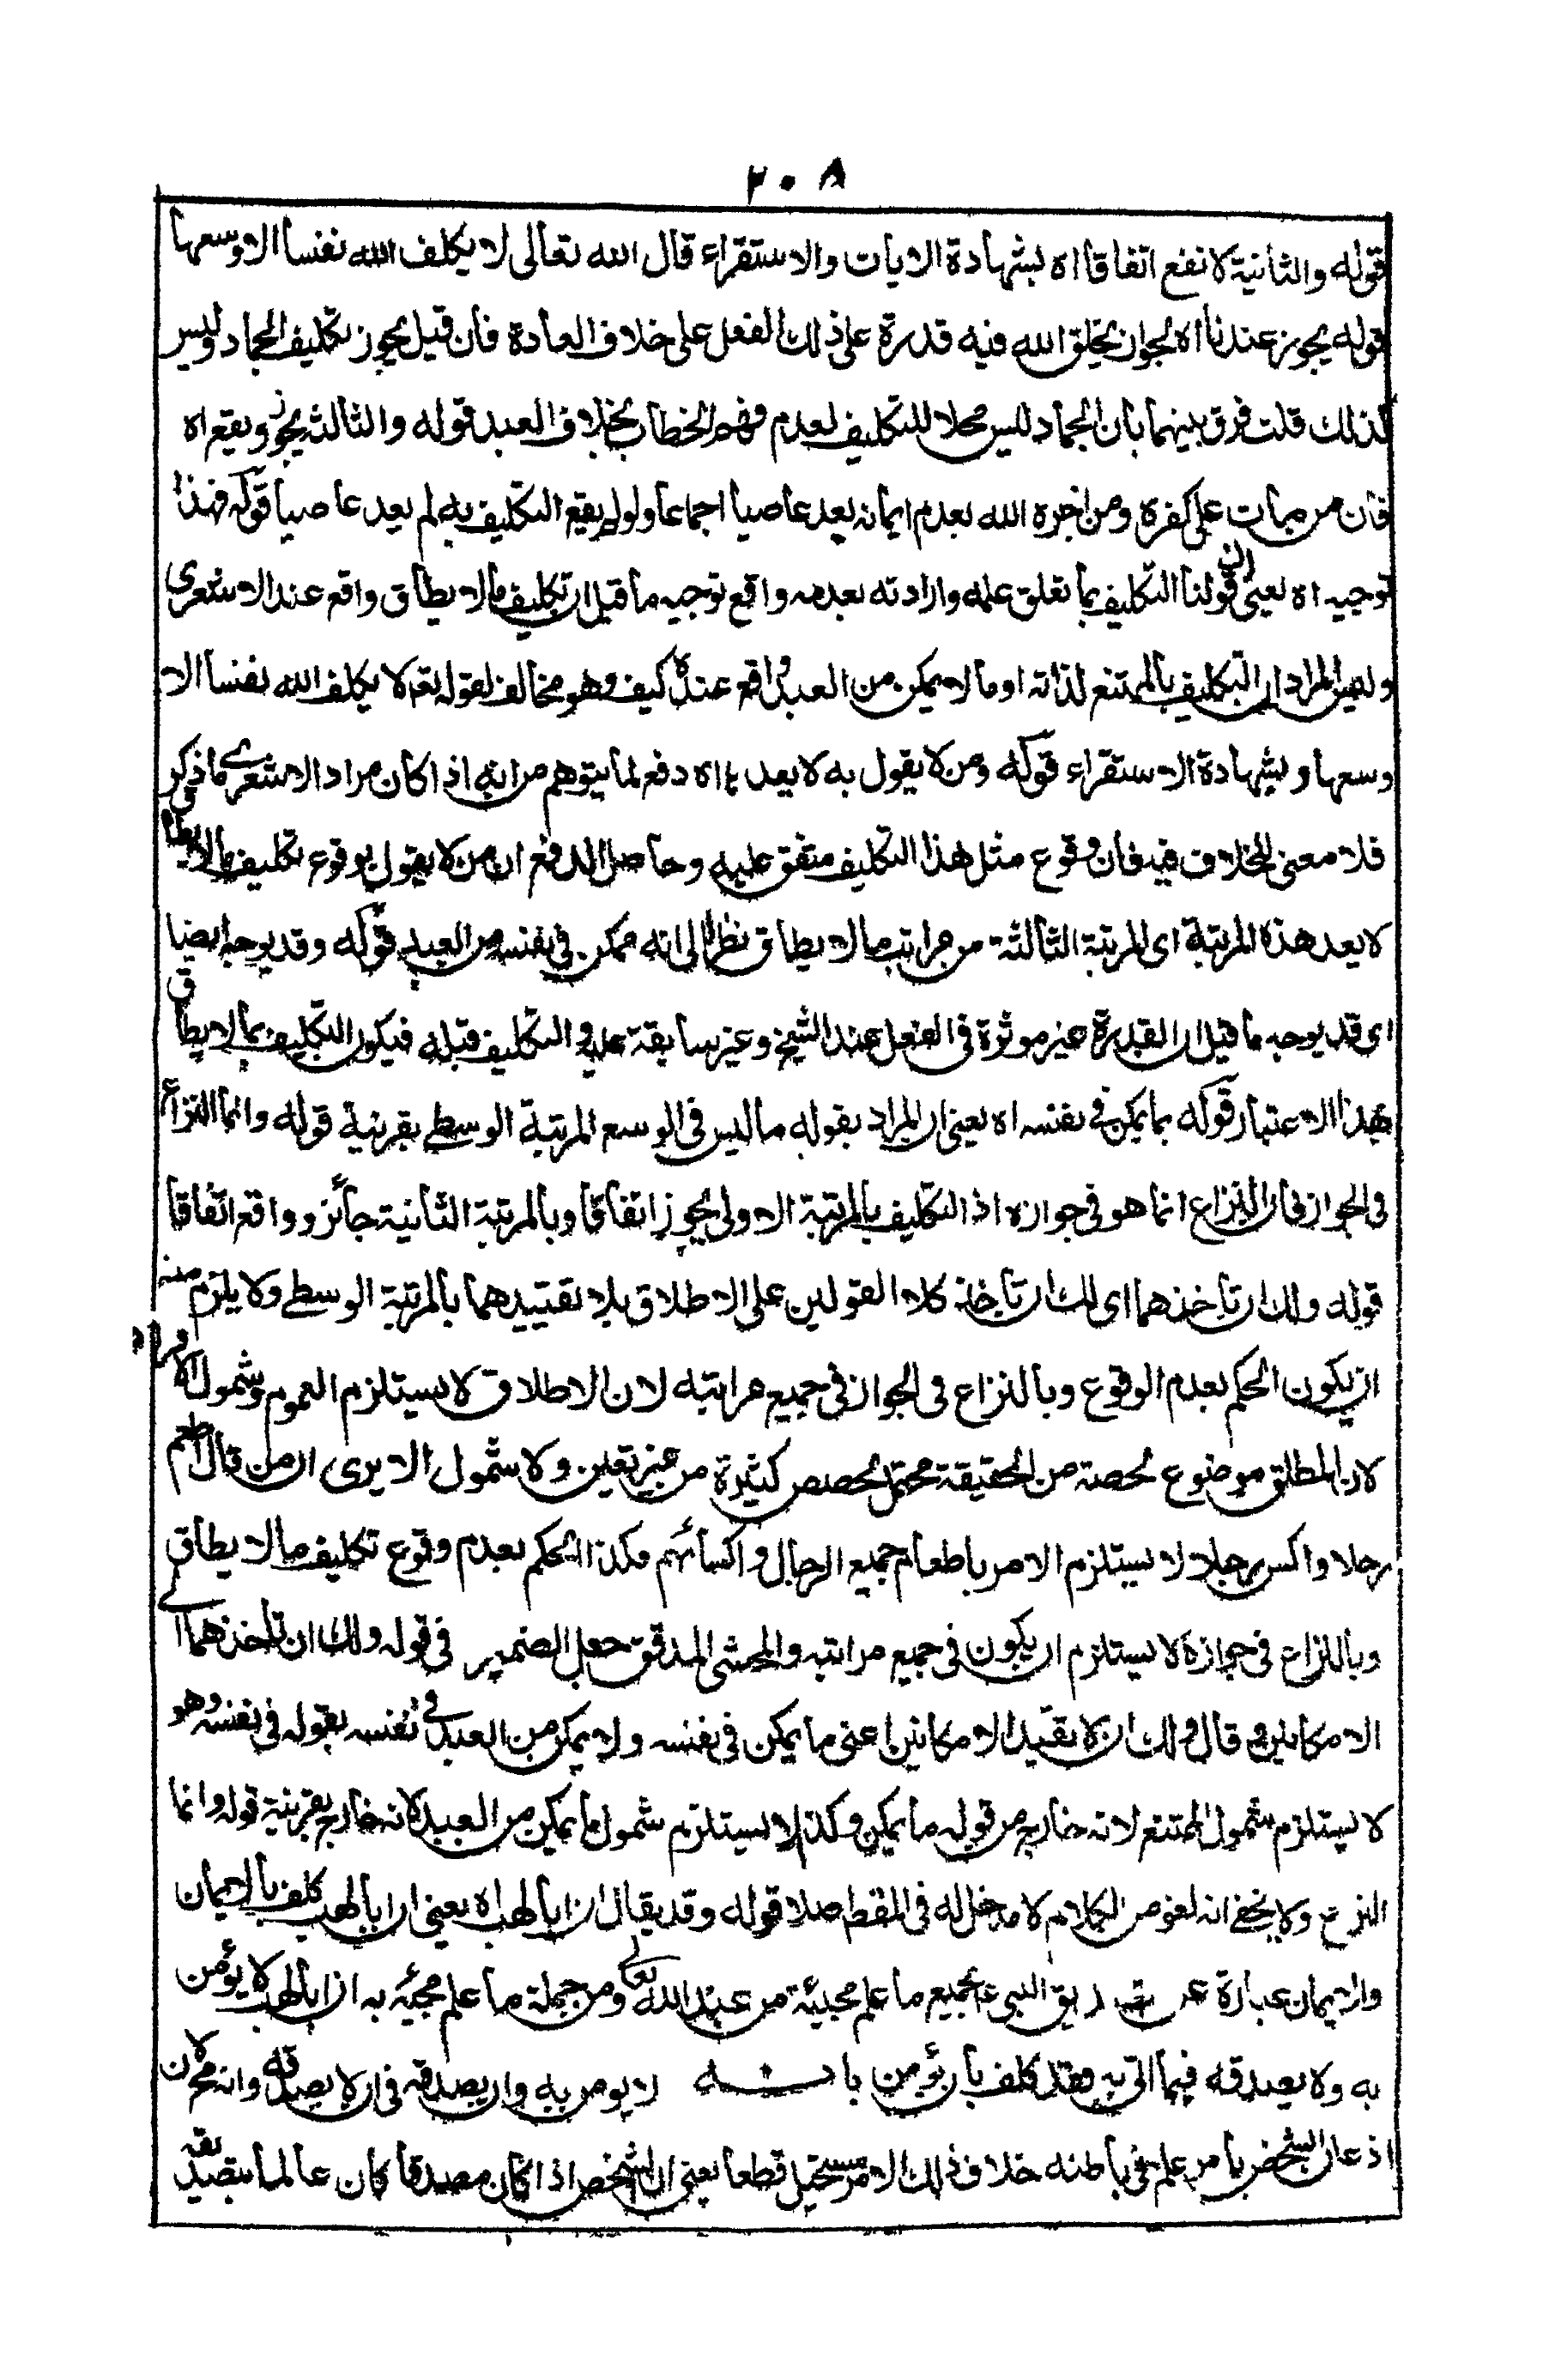 ٢٠٨
قوله والثانية لا تقع اتفاقا اه بشهادة الايات والاستقراء قال الله تعالى لا يكلف الله نفسا الا وسعها
قوله يجوز عندنا اه لجواز ان يخلق الله فيه قدرة على ذلك الفعل على خلاف العادة فان قيل يجوز تكليف الجماد وليس
كذلك قلت فرق بينهما بان الجماد ليس محلا للتكليف لعدم فهم الخطاب بخلاف العبد قوله والثالثة يجوز ويقع اه
فان من مات على كفره ومن اخبره الله بعدم ايمانه يعد عاصيا اجماعا ولو لم يقع التكليف به لم يعد عاصيا قوله فهذا
توجيه اه يعنى ان قولنا التكليف بما تعلق علمه وارادته بعدمه واقع توجيه ما قيل ان تكليف ما لا يطاق واقع عند الاشعرى
وليس المراد ان التكليف بالممتنع لذاته او ما لا يمكن من العبد واقع عنده كيف وهو مخالف لقوله تعم لا يكلف الله نفسا الا
وسعها وبشهادة الاستقراء قوله ومن لا يقول به لا يعد ها اه دفع لما يتوهم من انه اذا كان مراد الاشعرى ما ذكر
فلا معنى للخلاف فيه فان وقوع مثل هذا التكليف متفق عليه وحاصل الدفع ان من لا يقول بوقوع تكليف ما لا يطاق
لا يعد هذه المرتبة اى المرتبة الثالثة من مراتب ما لا يطاق نظرا الى انه ممكن فى نفسه من العبد قوله وقد يوجه ايضا
اى قد يوجه ما قيل ان القدرة غير موثرة فى الفعل عند الشيخ وغير سابقة عليه والتكليف قبله فيكون التكليف بما لا يطاق
بهذا الاعتبار قوله بما يمكن فى نفسه اه يعنى ان المراد بقوله ما ليس فى الوسع المرتبة الوسطى بقرينة قوله وانما النزاع
فى الجواز فان النزاع انما هو فى جوازه اذ التكليف بالمرتبة الاولى يجوز اتفاقا وبالمرتبة الثانية جائز وواقع اتفاقا
قوله ولك ان تاخذهما اى لك ان تاخذ كلا القولين على الاطلاق بلا تقييدهما بالمرتبة الوسطى ولا يلزم منه
ان يكون الحكم بعدم الوقوع وبالنزاع فى الجواز فى جميع مراتبه لان الاطلاق لا يستلزم العموم وشمول الافراد
لان المطلق موضوع لحصة من الحقيقة محتمل لحصص كثيرة من غير تعين ولا شمول الا يرى ان من قال اطعم
رجلا واكس رجلا لا يستلزم الامر باطعام جميع الرجال واكسائهم فكذا الحكم بعدم وقوع تكليف ما لا يطاق
وبالنزاع فى جوازه لا يستلزم ان يكون فى جميع مراتبه والمحشى المدقق جعل الضمير فى قوله ولك ان تاخذهما الى
الامكانين وقال ولك ان لا تقيد الامكانين اعنى ما يمكن فى نفسه ولا يمكن من العبد فى نفسه بقوله فى نفسه وهو
لا يستلزم شمول الممتنع لانه خارج من قوله ما يمكن وكذا لا يستلزم شمول ما يمكن من العبد لانه خارج بقرينة قوله وانما
النزع ولا يخفى انه لغو من الكلام لا مدخل له فى المقط صلا قوله وقد يقال ان ابا لهب اه يعنى ان ابا لهب كلف بالايمان
والايمان عبارة عن تصديق النبى ع بجميع ما علم مجيئه من عند الله تعالى ومن جملة ما علم مجيئه به ان ابا لهب لا يؤمن
به ولا يصدقه فيما اتى به فقد كلف بان يؤمن بانه لا يومن به وان يصدقه فى ان لا يصدقه وانه مح لان
اذعان الشخص بامر علم فى باطنه خلاف ذلك الامر مستحيل قطعا يعنى ان الشخص اذا كان مصدقا كان عالما بتصديقه